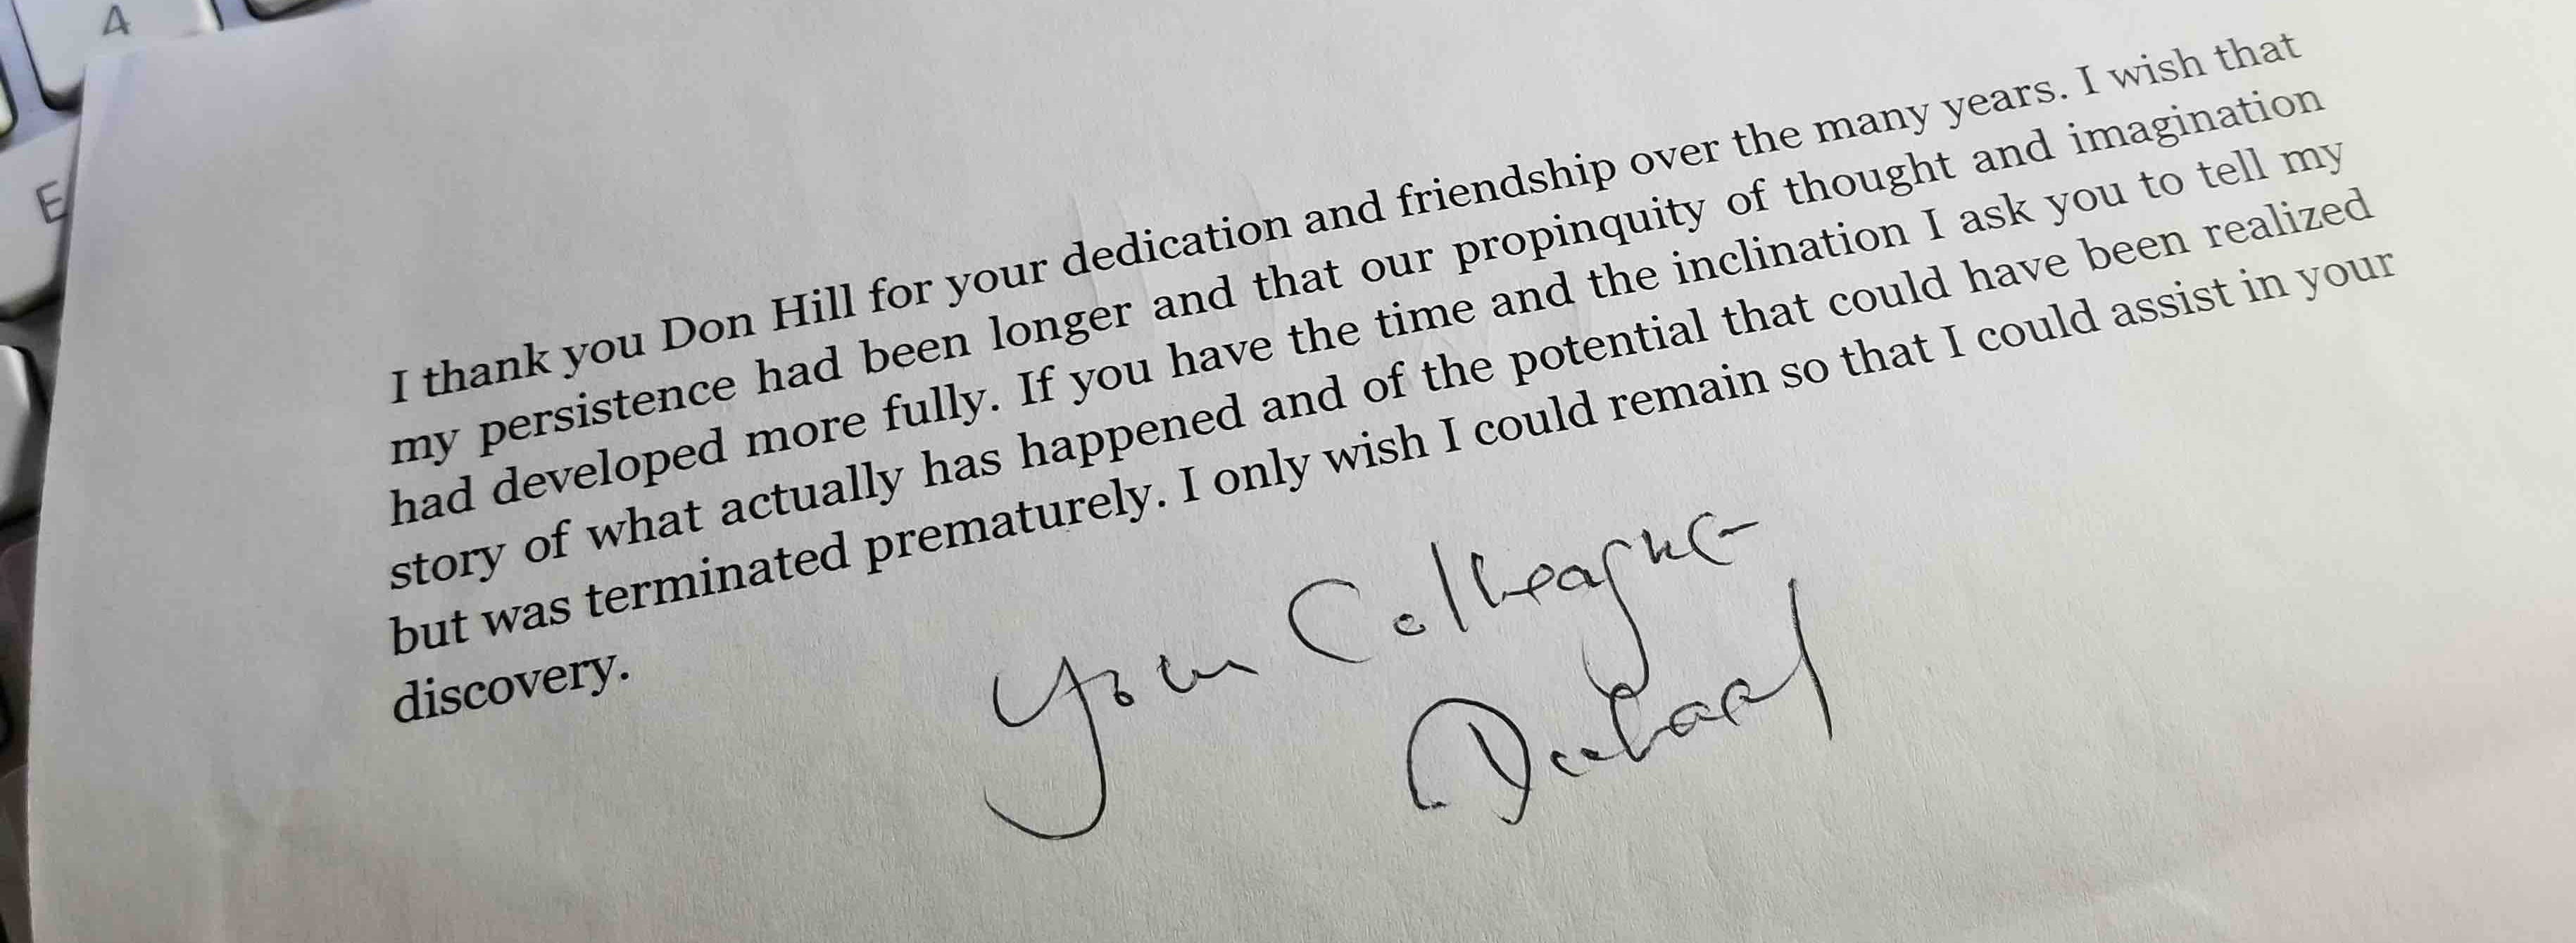 4
E
I thank you Don Hill for your dedication and friendship over the many years. I wish that
my persistence had been longer and that our propinquity of thought and imagination
had developed more fully. If you have the time and the inclination I ask you to tell my
story of what actually has happened and of the potential that could have been realized
but was terminated prematurely. I only wish I could remain so that I could assist in your
discovery.
Your Colleague